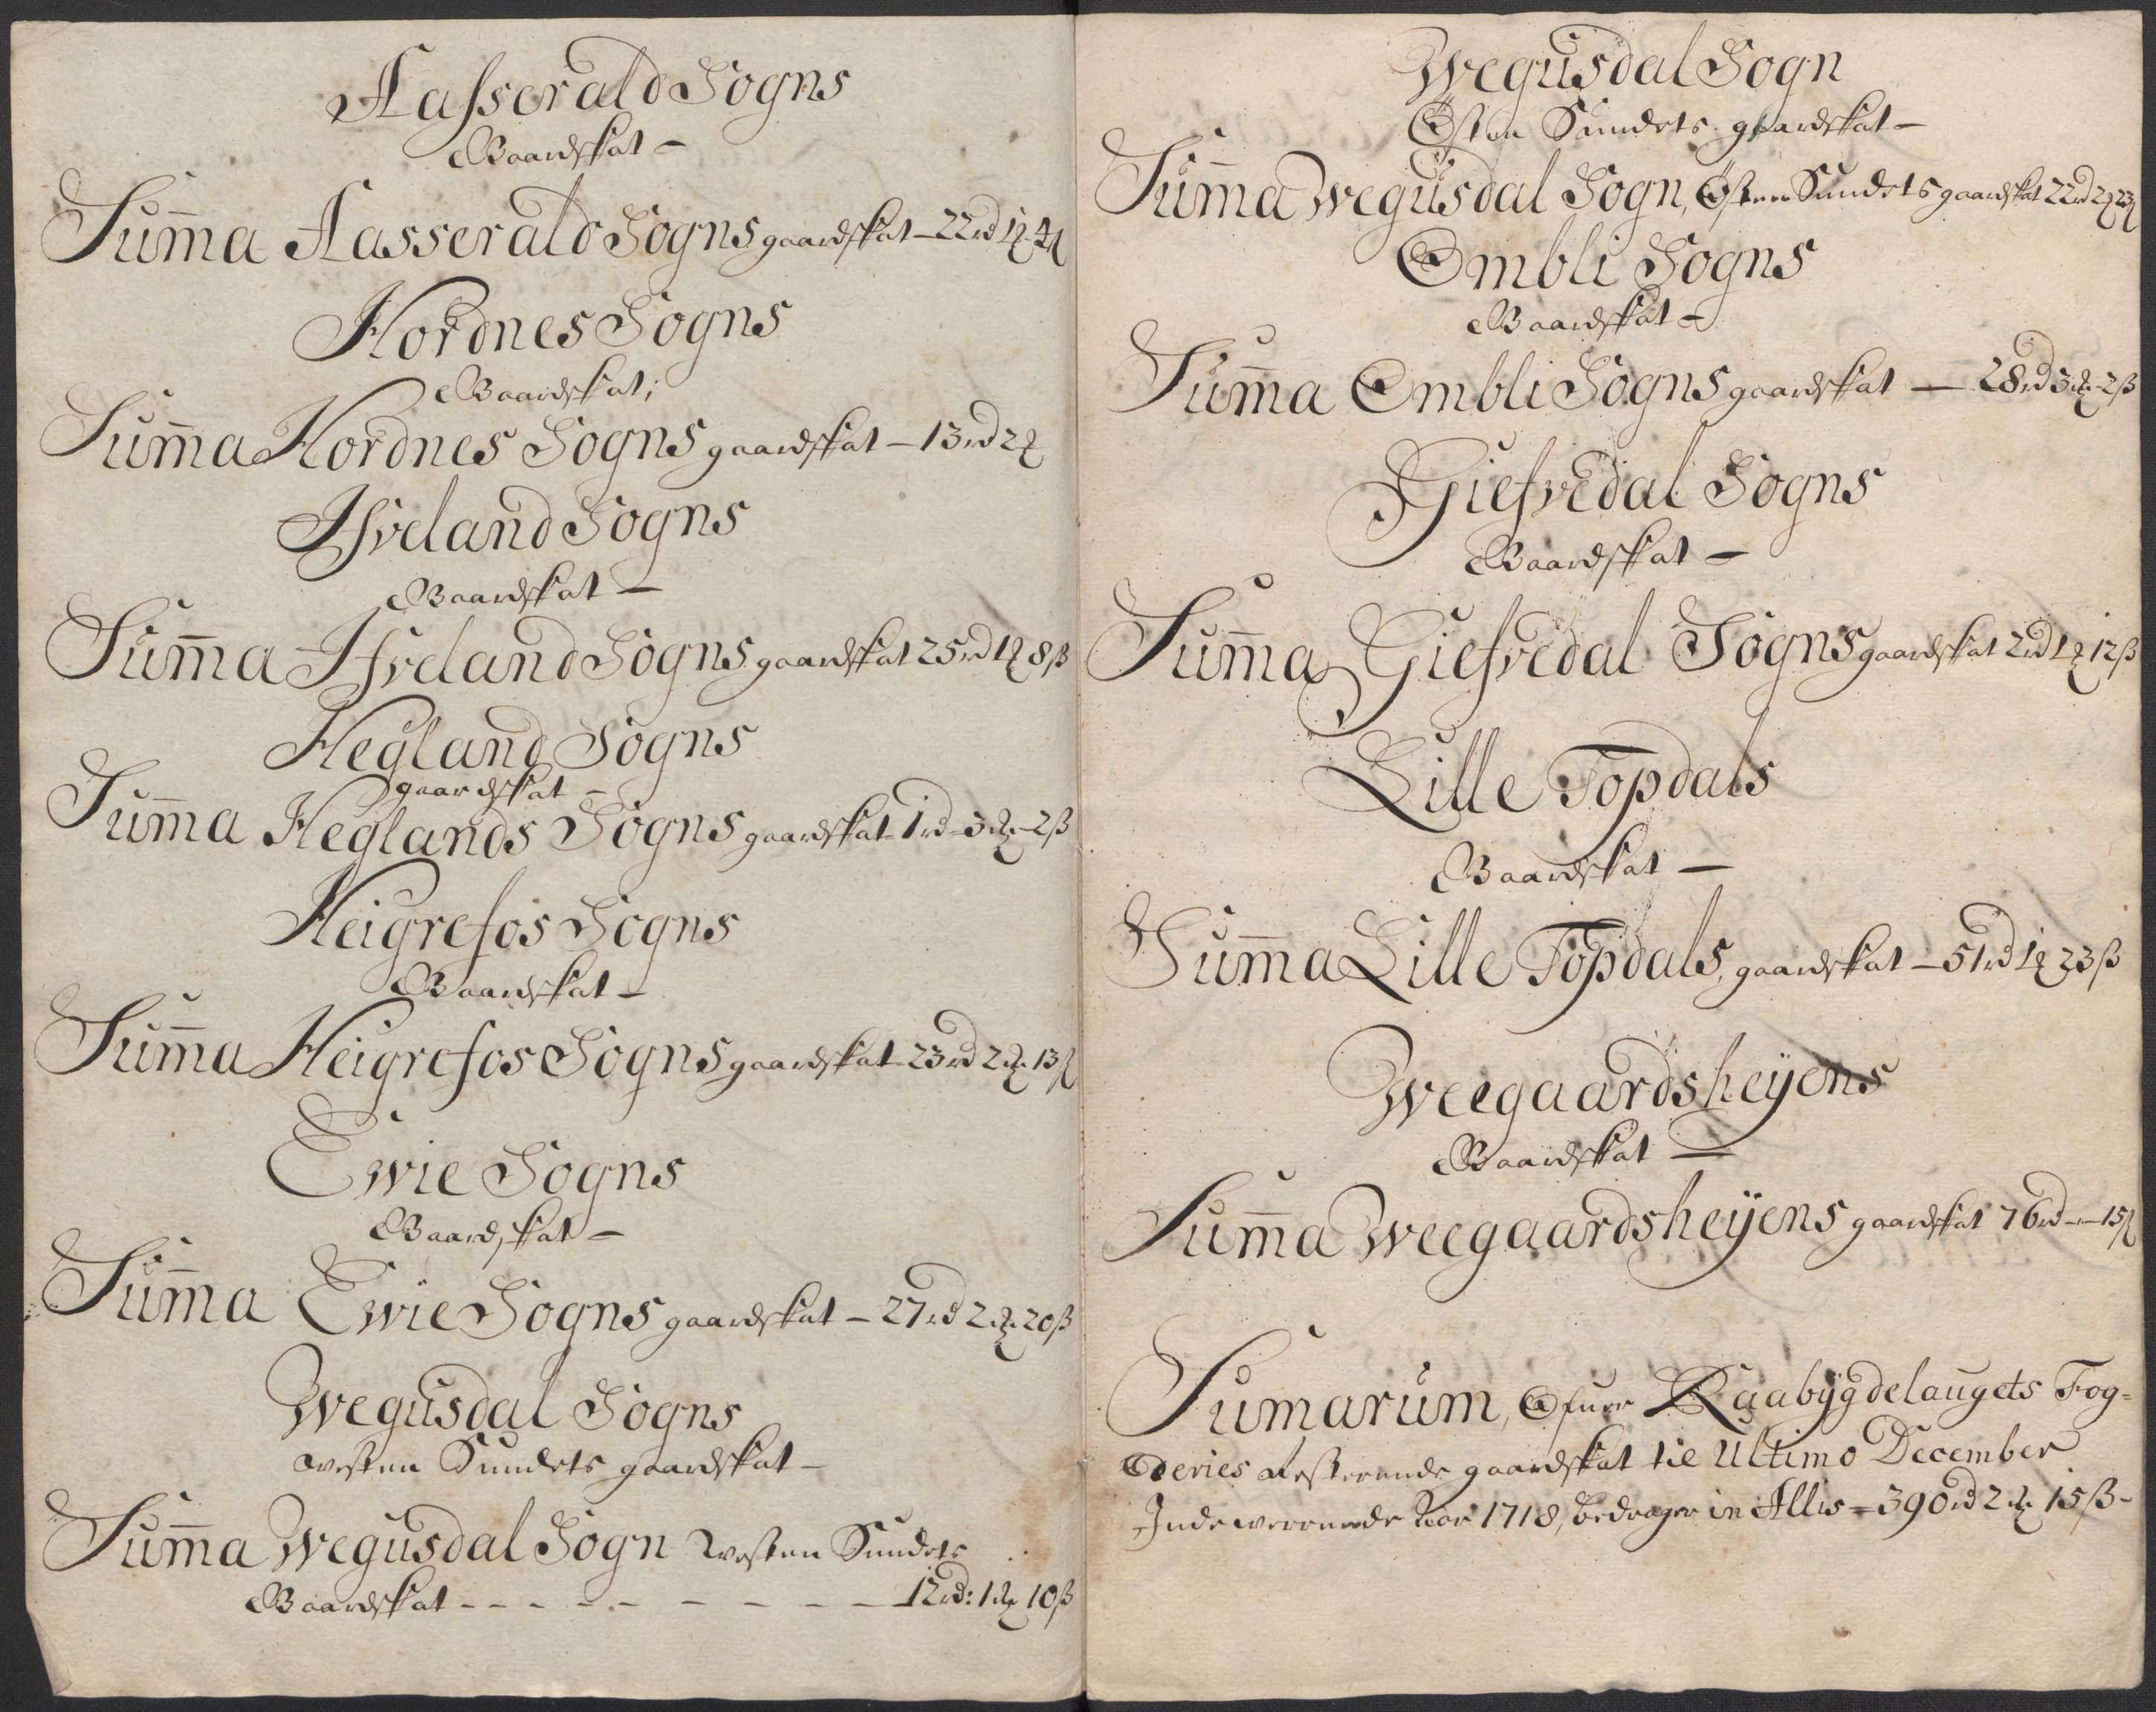 Aasserald Sogns
Gaardskat –
Sum̅a Aasserald Sogns gaardskat – 22rd 1𝔷 4ß
Hordnes Sogns
Gaardskat;
Sum̅a Hordnes Sogns gaardskat – 13rd 2𝔷
Ifveland Sogns
Gaardskat –
Sum̅a Ifveland Sogns gaardskat 25rd 1𝔷 8ß
Hegland Sogns
gaardskat –
Sum̅a Heglands Sogns gaardskat 1rd – 3𝔷 – 2ß
Heigrefos Sogns
Gaardskat –
Sum̅a Heigrefos Sogns gaardskat 23rd 2𝔷 13ß
Ewie Sogns
Gaardskat –
Sum̅a Ewie Sogns gaardskat – 27rd 2𝔷 20ß
Wegusdal Sogns
westen Sundets gaardskat –
Sum̅a Wegusdal Sogn westen Sundets
Gaardskat – – – – – – – – – – 12rd: 1𝔷 10ß
Wegusdal Sogn
Østen Sundets gaardskat –
Sum̅a Wegusdal Sogn, Østen Sundets gaardskat 22rd 2𝔷 23ß
Ombli Sogns
Gaardskat –
Sum̅a Ombli Sogns gaardskat — 28rd 3𝔷 – 2ß
Giefvedal Sogns
Gaardskat –
Sum̅a Giefvedal Sogns gaardskat 2rd 1𝔷 12ß
Lille Topdals
Gaardskat —
Sum̅a Lille Topdals, gaardskat – 51rd 1𝔷 23ß
Weegaardsheÿens
Gaardskat —
Sum̅a Weegaardsheÿens gaardskat 76rd – – 15ß
Sumarum, Ofuer Raabÿgdelaugets Fog-
Deries resterende gaardskat til Ultimo December
Indeverende Aar 1718, bedrager in Allis = 390rd 2𝔷 15ß –